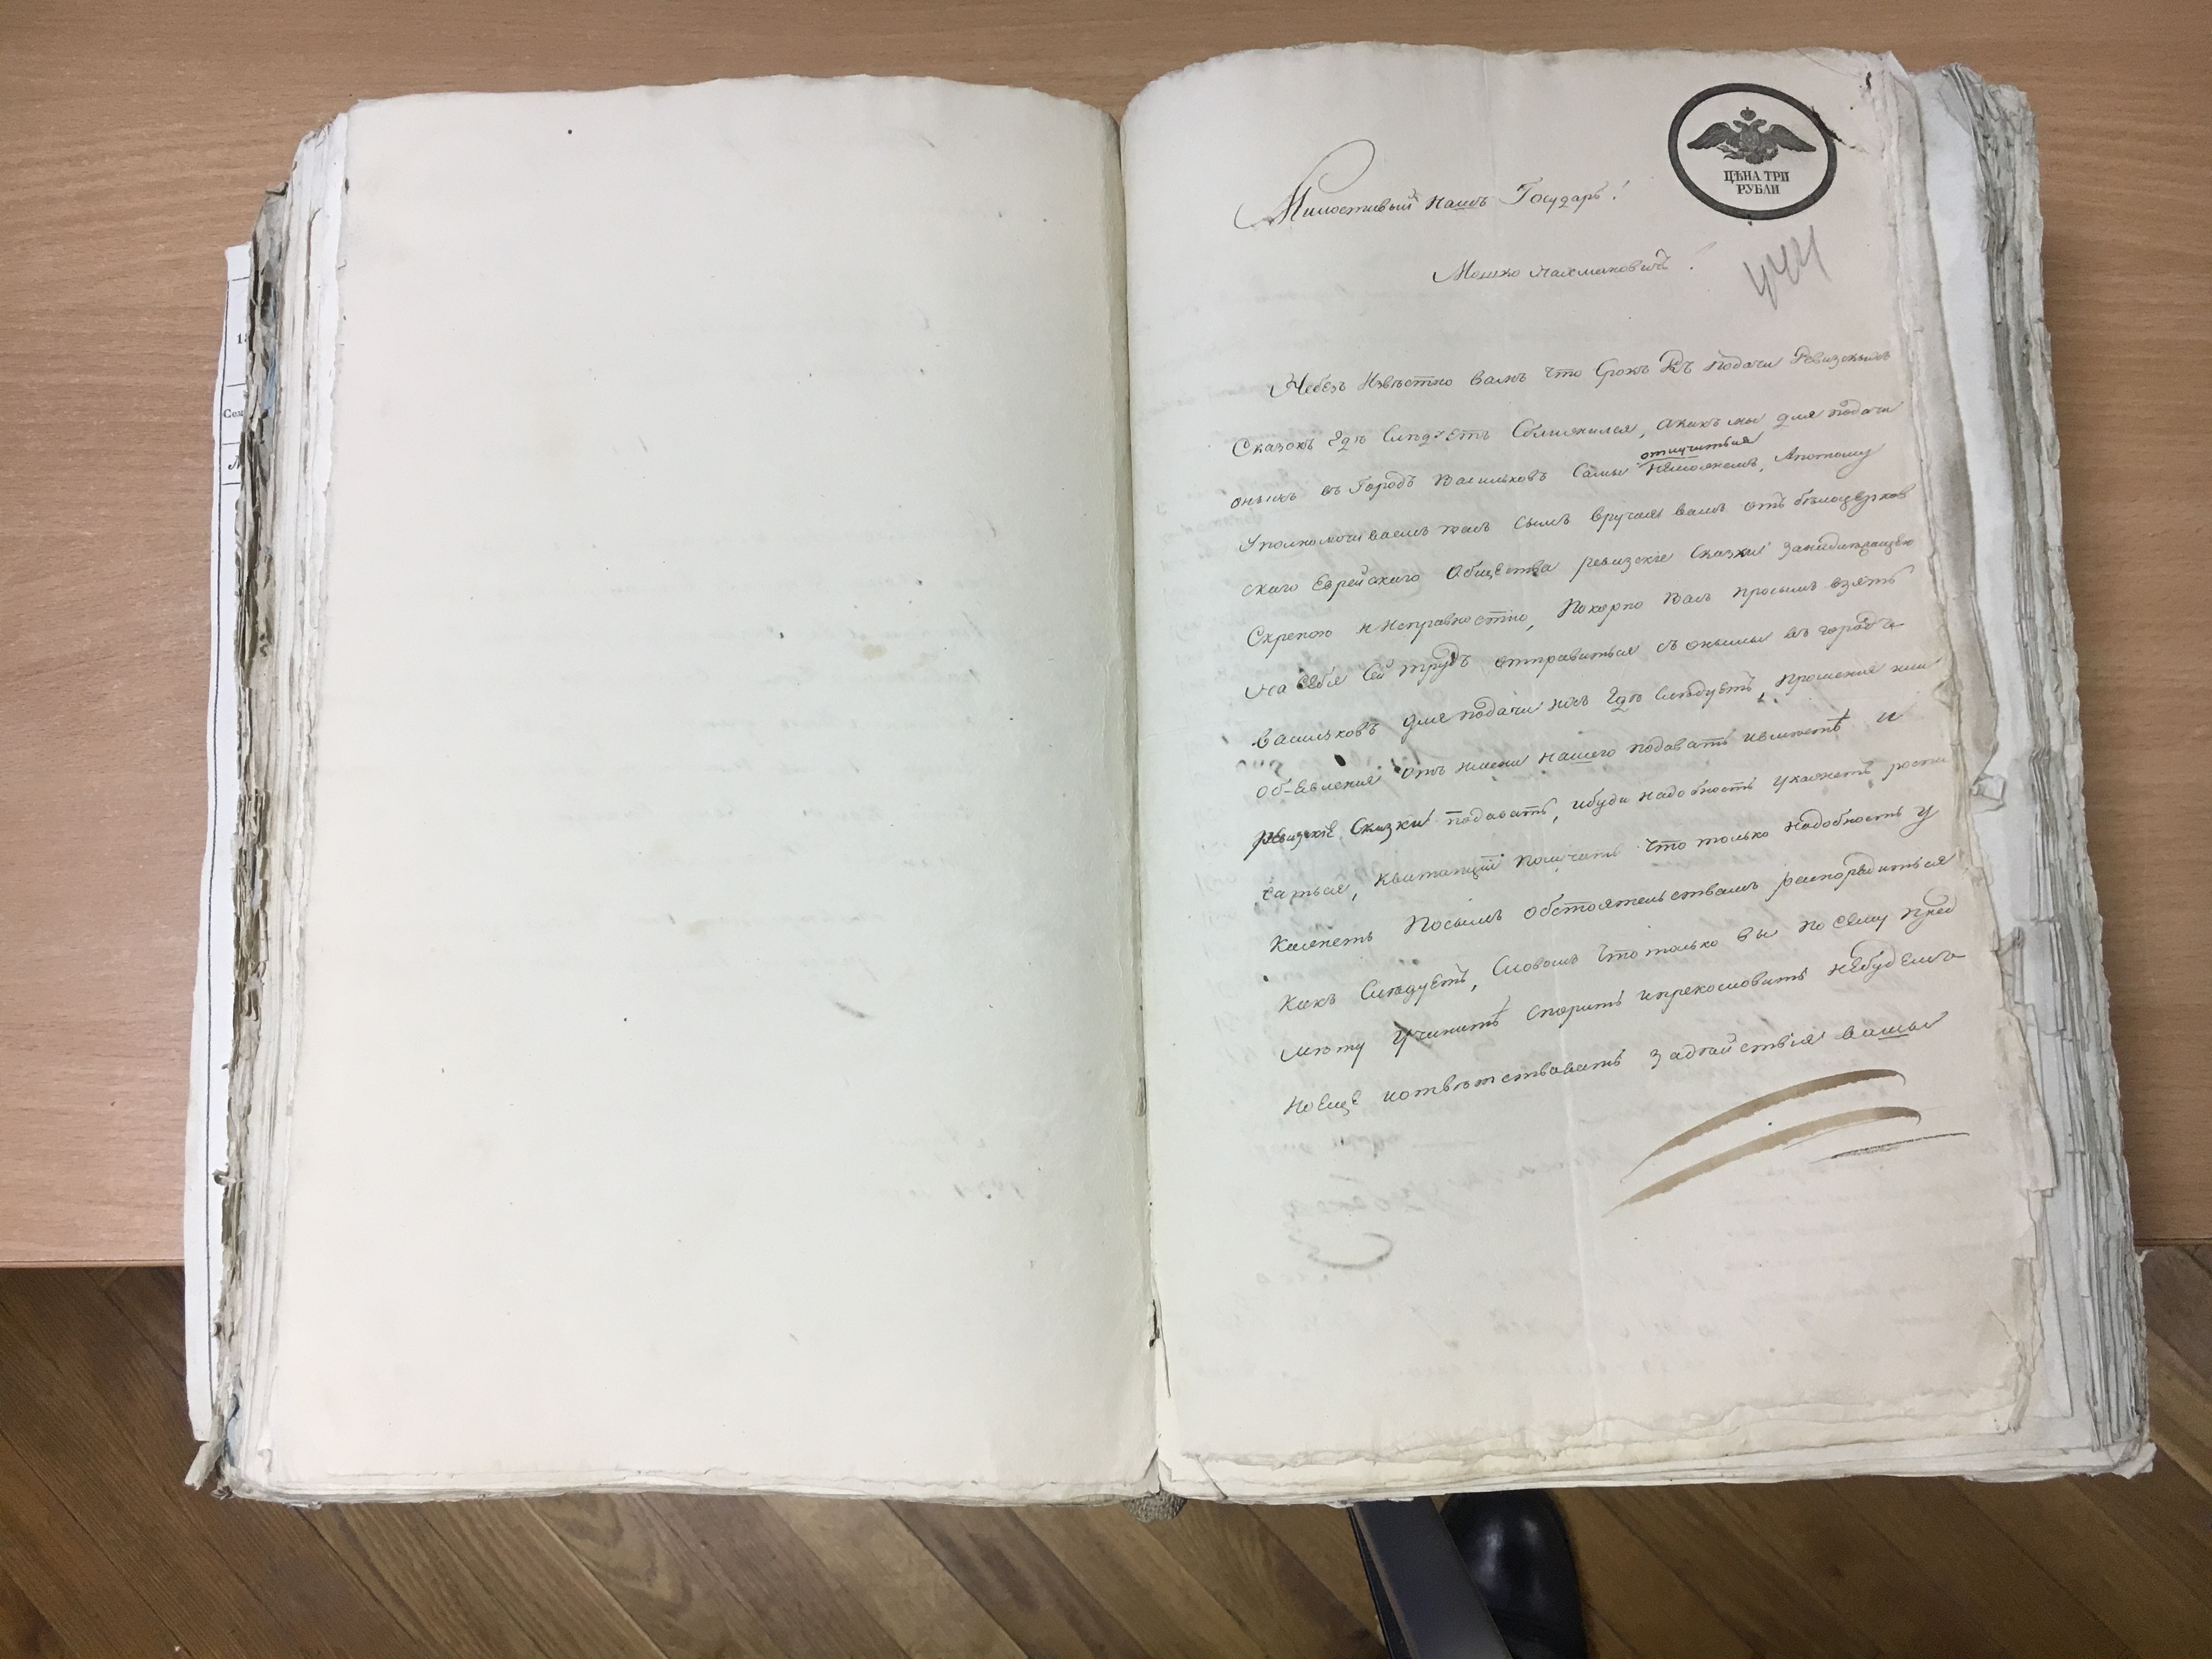 ЦѢНА ТРИ
РУБЛИ
Милостивый нашъ Государь!
Мошко Нахмановичъ!
444
Небезъ Извѣстно вамъ что Срокъ Къ подачи Ревизскихъ
Сказокъ Гдѣ Слѣдуетъ Сближился, акакъ мы для подачи
отлучиться
оныхъ въ Городъ Васильковъ Самы неможемъ, Апотому
Уполномочиваемъ васъ Сымъ вручая вамъ отъ бѣлоцерков
скаго Еврейскаго Общества ревизскіе Сказки
Скрепою и Исправностію, Покорно васъ просымъ взять
на себя Сей трудъ отправиться съ онымы въ городъ
Васильковъ для подачи ихъ Гдѣ Слѣдуетъ, прошения или
Об-Евления отъ имени нашего подавать и
ревизскіе Сказки подавать, ибуди надобность укажетъ роспи
саться, Квитанціи Получать что только надобность у
кажетъ Посымъ обстоятельствамъ распорядиться
Какъ Слѣдуетъ, Словомъ Что только вы по сему пред
мѣту Учините Спорить ипрекословить небудемъ
но Еще иотвѣтствовать задѣйствія вашы
18
Сем